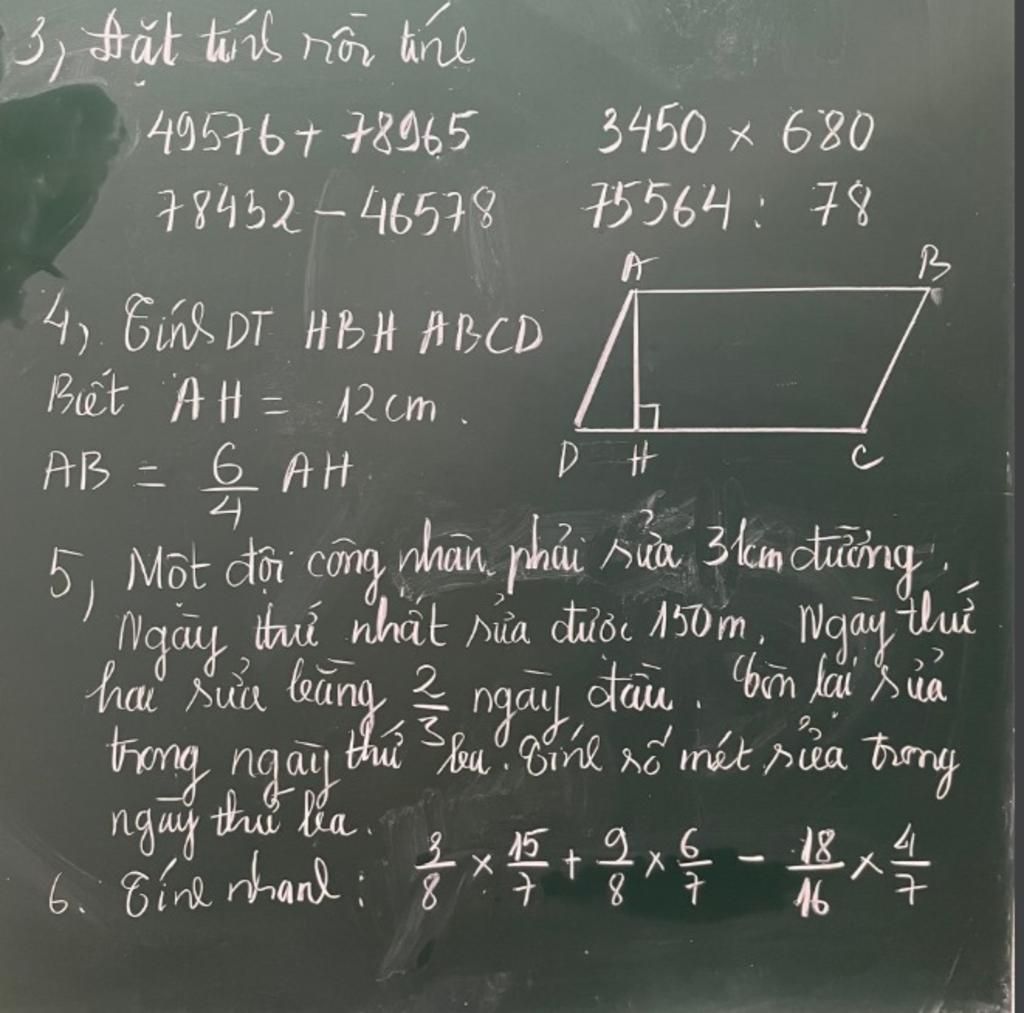 3, Đặt tính rồi tính
49576 + 78965 3450 × 680
78432 - 46578 75564 : 78
4, Tính DT HBH ABCD
Biết AH = 12cm.
AB = 6/4 AH
A B
D H C
5, Một đội công nhân phải sửa 3km đường.
Ngày thứ nhất sửa được 150m. Ngày thứ
hai sửa bằng 2/3 ngày đầu. Còn lại sửa
trong ngày thứ ba. Tính số mét sửa trong
ngày thứ ba.
6. Tính nhanh: 3/8 × 15/7 + 9/8 × 6/7 - 18/16 × 4/7